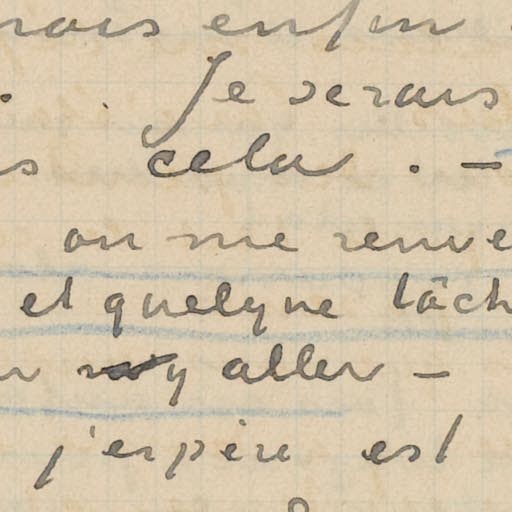 mais enfin
. Je serais
s cela . —
on me renve
et quelque tâch
r y aller —
j'espère est